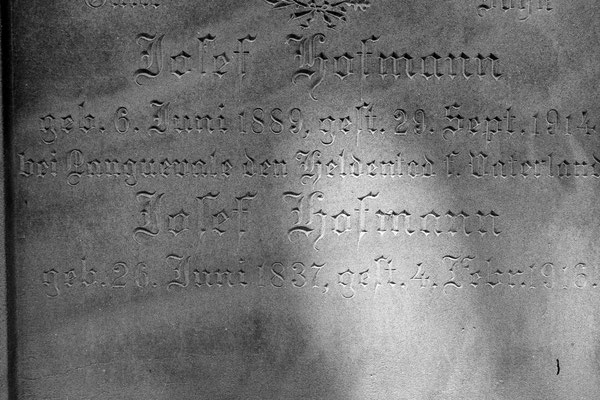 Sohn
Josef Hofmann
geb. 6. Juni 1889, gest. 29. Sept. 1914
bei Languevale den Heldentod f. Vaterland
Josef Hofmann
geb. 26. Juni 1837, gest. 4. Febr. 1916.